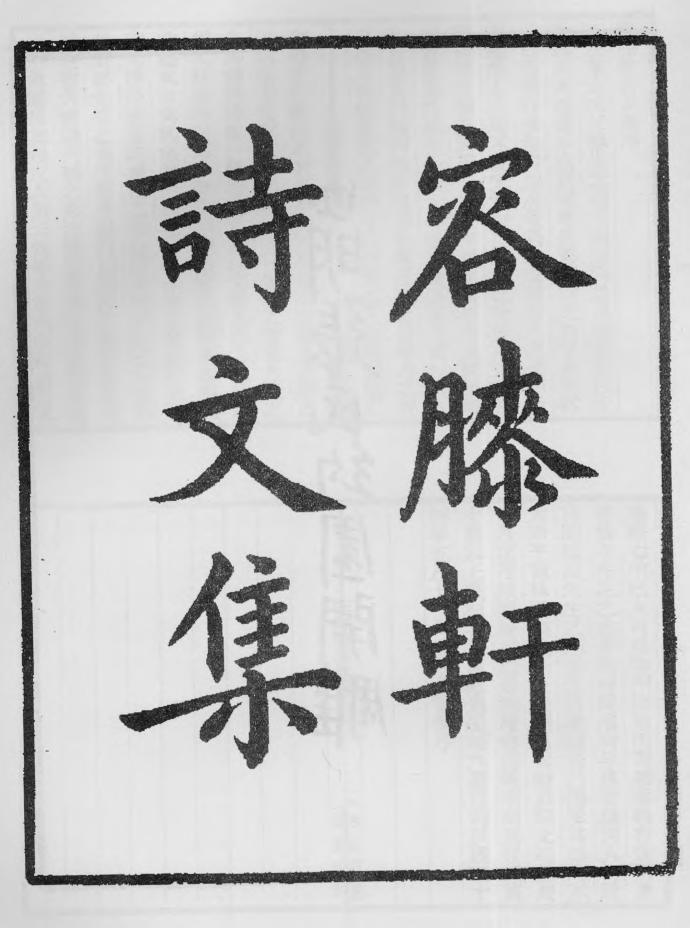 容膝軒
詩文集